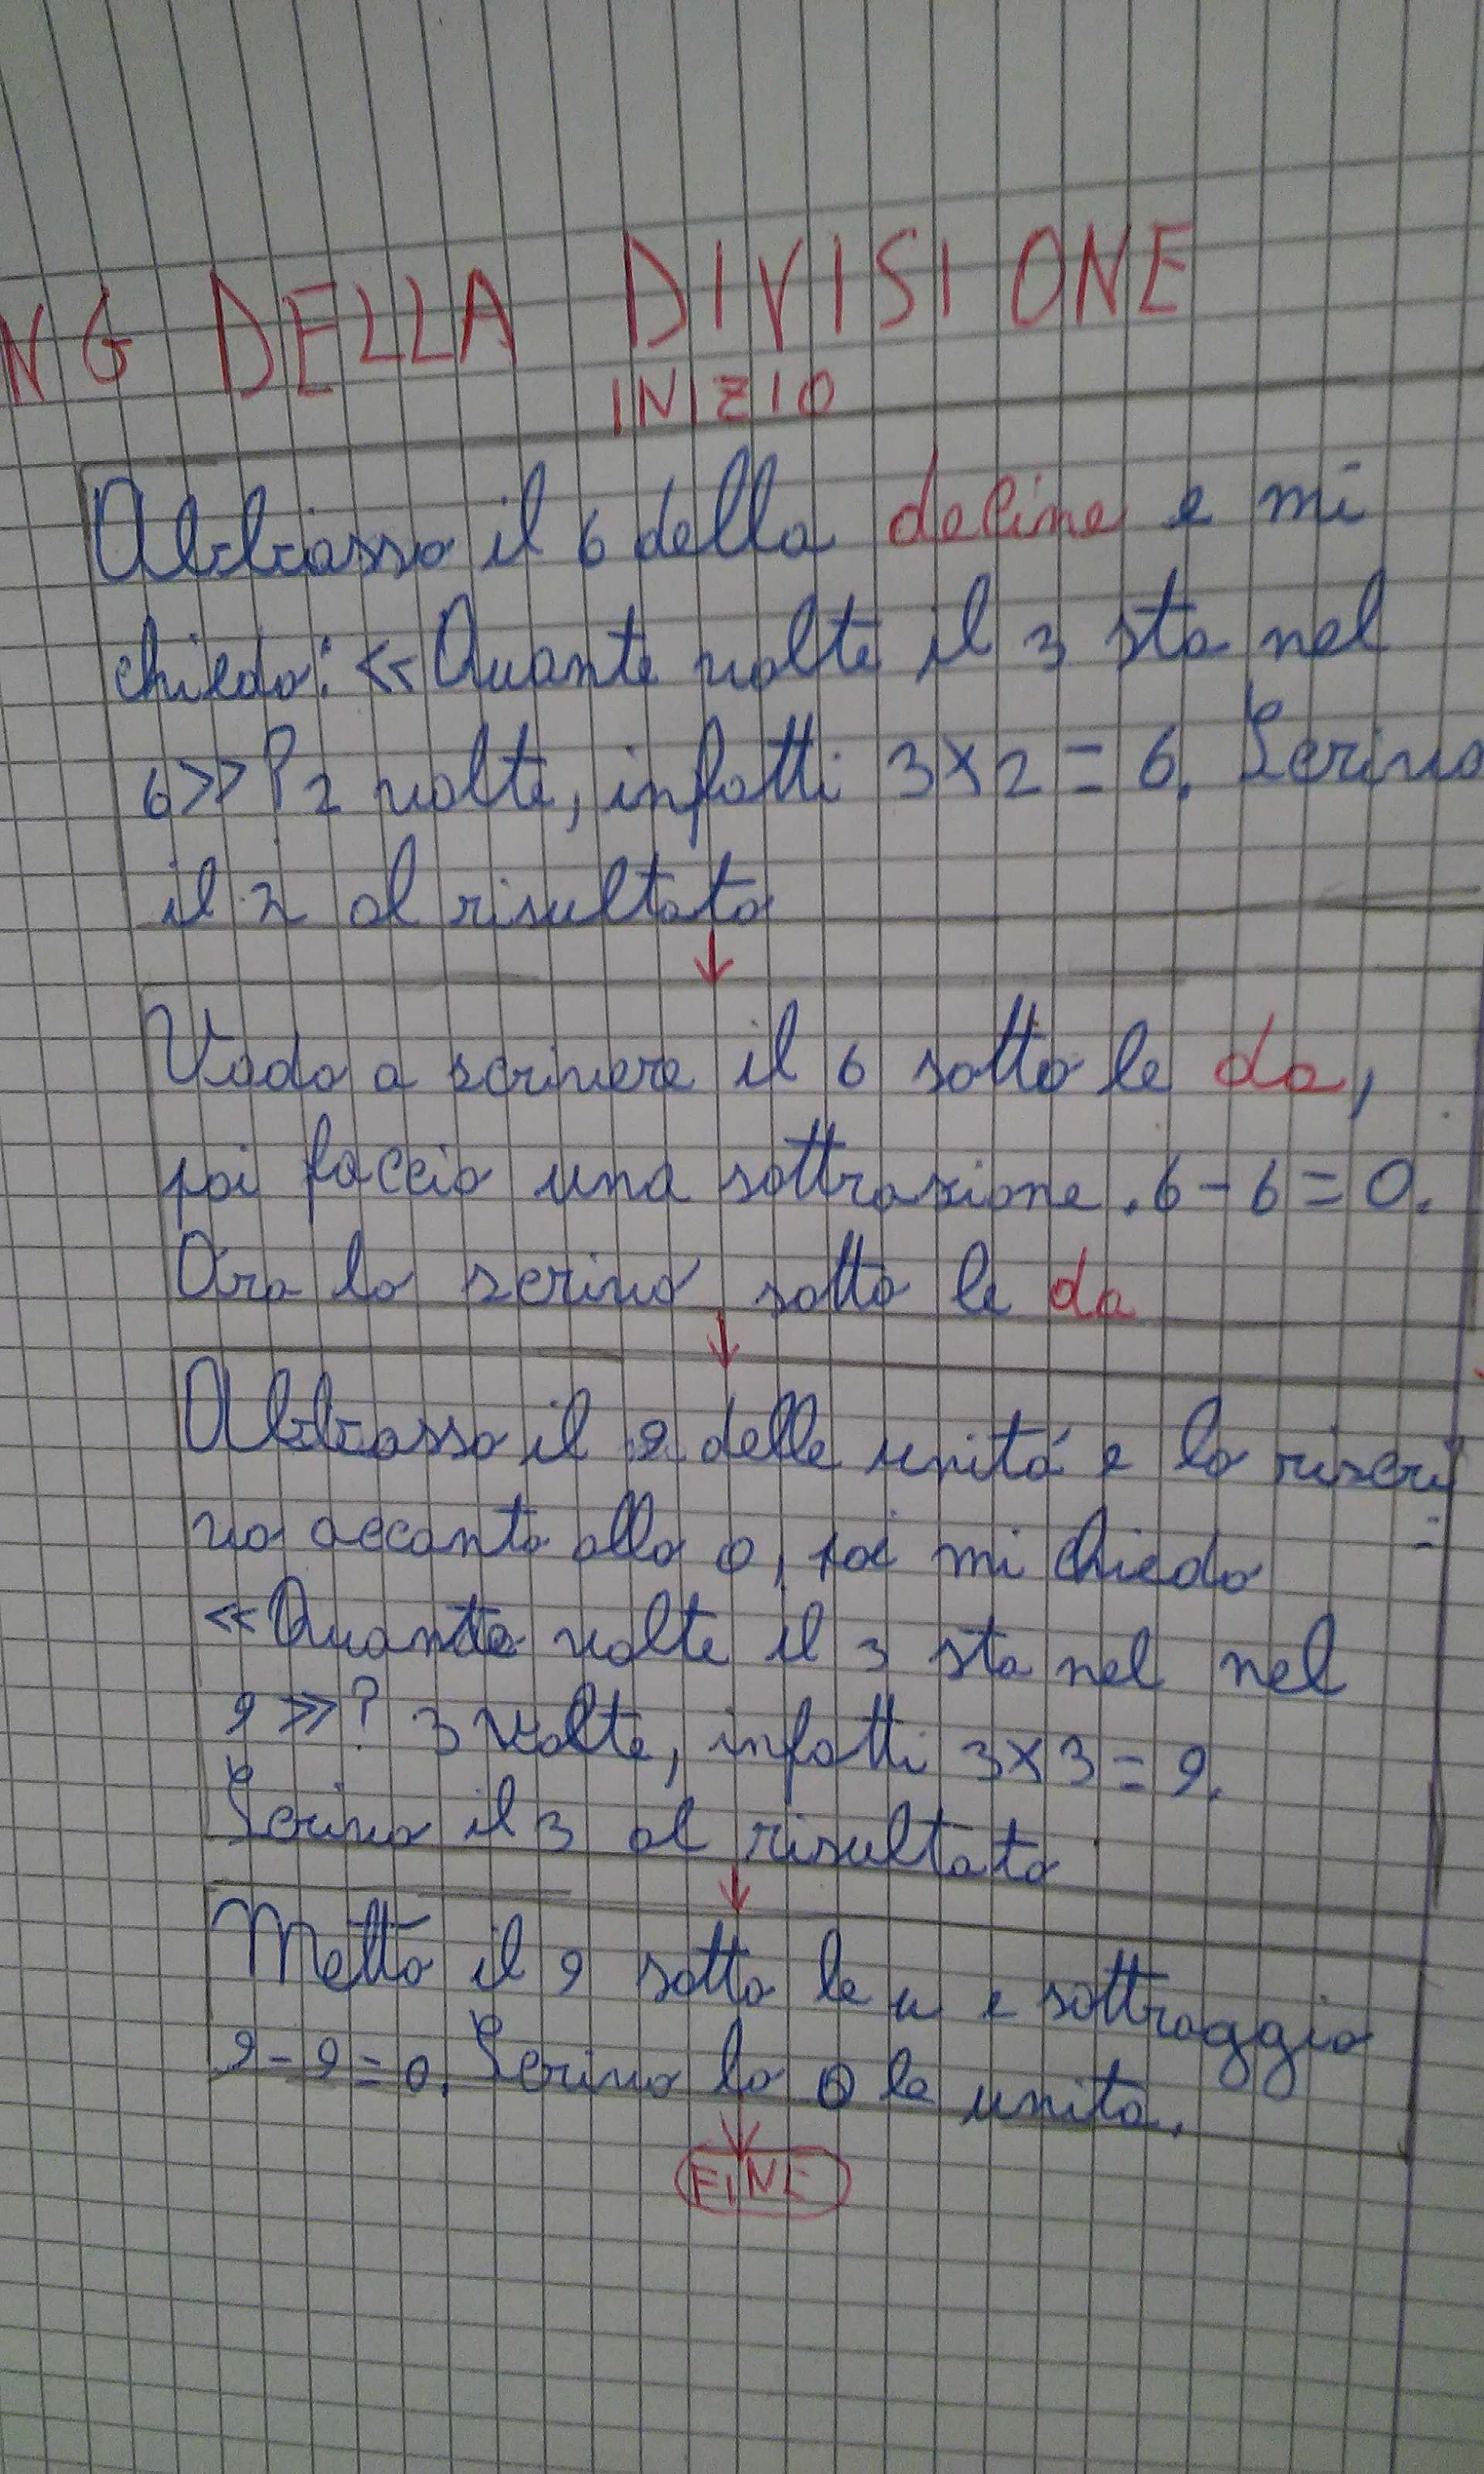 NG DELLA DIVISIONE
INIZIO
Abbasso il 6 della decine e mi
chiedo: «Quante volte il 3 sta nel
6»? 2 volte, infatti 3×2=6. Scrivo
il 2 al risultato
↓
Vado a scrivere il 6 sotto le da,
poi faccio una sottrazione. 6-6=0.
Ora lo scrivo sotto le da
↓
Abbasso il 9 delle unitá e lo riscri
vo accanto allo 0, poi mi chiedo
«Quante volte il 3 sta nel nel
9»? 3 volte, infatti 3×3=9.
Scrivo il 3 al risultato
↓
Metto il 9 sotto le u e sottraggio
9-9=0. Scrivo lo 0 le unita.
↓
FINE